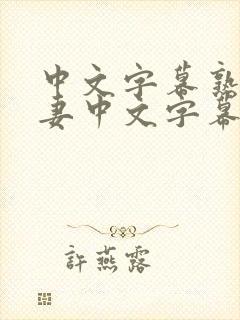 中文字幕熟
妻中文字幕
許燕露